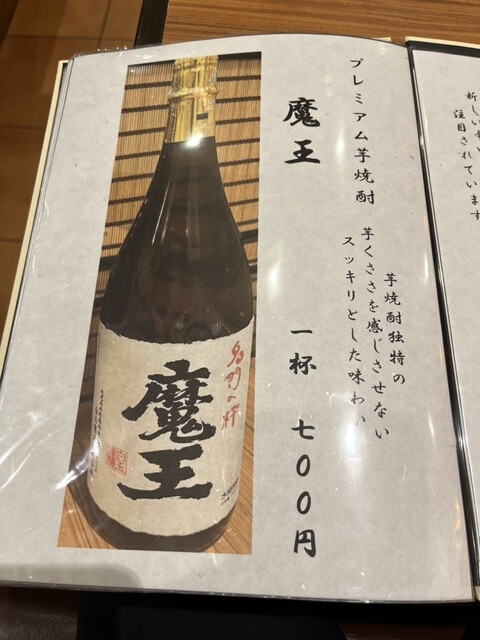 新しい
注目されています
プレミアム芋焼酎
芋焼酎独特の
芋くささを感じさせない
スッキリとした味わい
魔王
一杯 七〇〇円
名門の粋
魔王